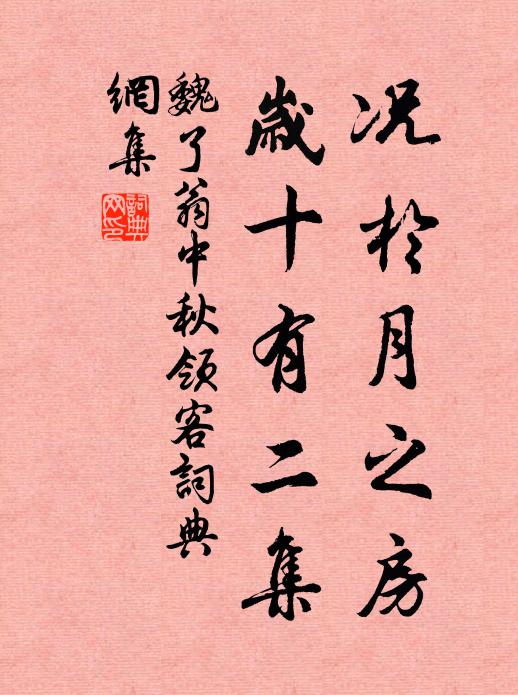 况於月之房
歲十有二集
魏了翁中秋領客詞典
網集
詞典網印